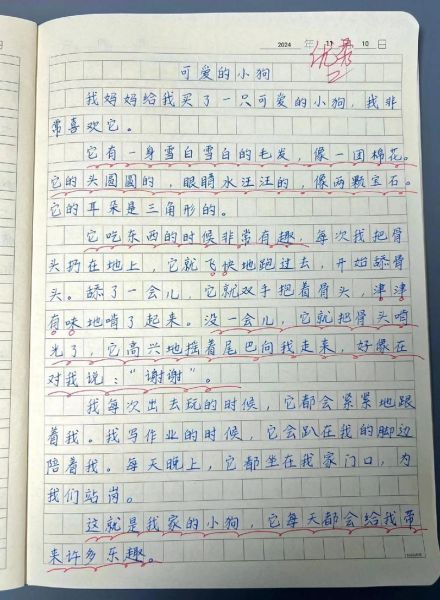 2024 年 11 月 10 日
优秀
可爱的小狗
我妈妈给我买了一只可爱的小狗,我非
常喜欢它。
它有一身雪白雪白的毛发,像一团棉花。
它的头圆圆的,眼睛水汪汪的,像两颗宝石。
它的耳朵是三角形的。
它吃东西的时候非常有趣,每次我把骨
头扔在地上,它就飞快地跑过去,开始舔骨
头。舔了一会儿,它就双手把着骨头,津津
有味地啃了起来。没一会儿,它就把骨头啃
光了,它高兴地摇着尾巴向我走来,好像在
对我说:“谢谢”。
我每次出去玩的时候,它都会紧紧地跟
着我。我写作业的时候,它会趴在我的脚边
陪着我。每天晚上,它都坐在我家门口,为
我们站岗。
这就是我家的小狗,它每天都会给我带
来许多乐趣。